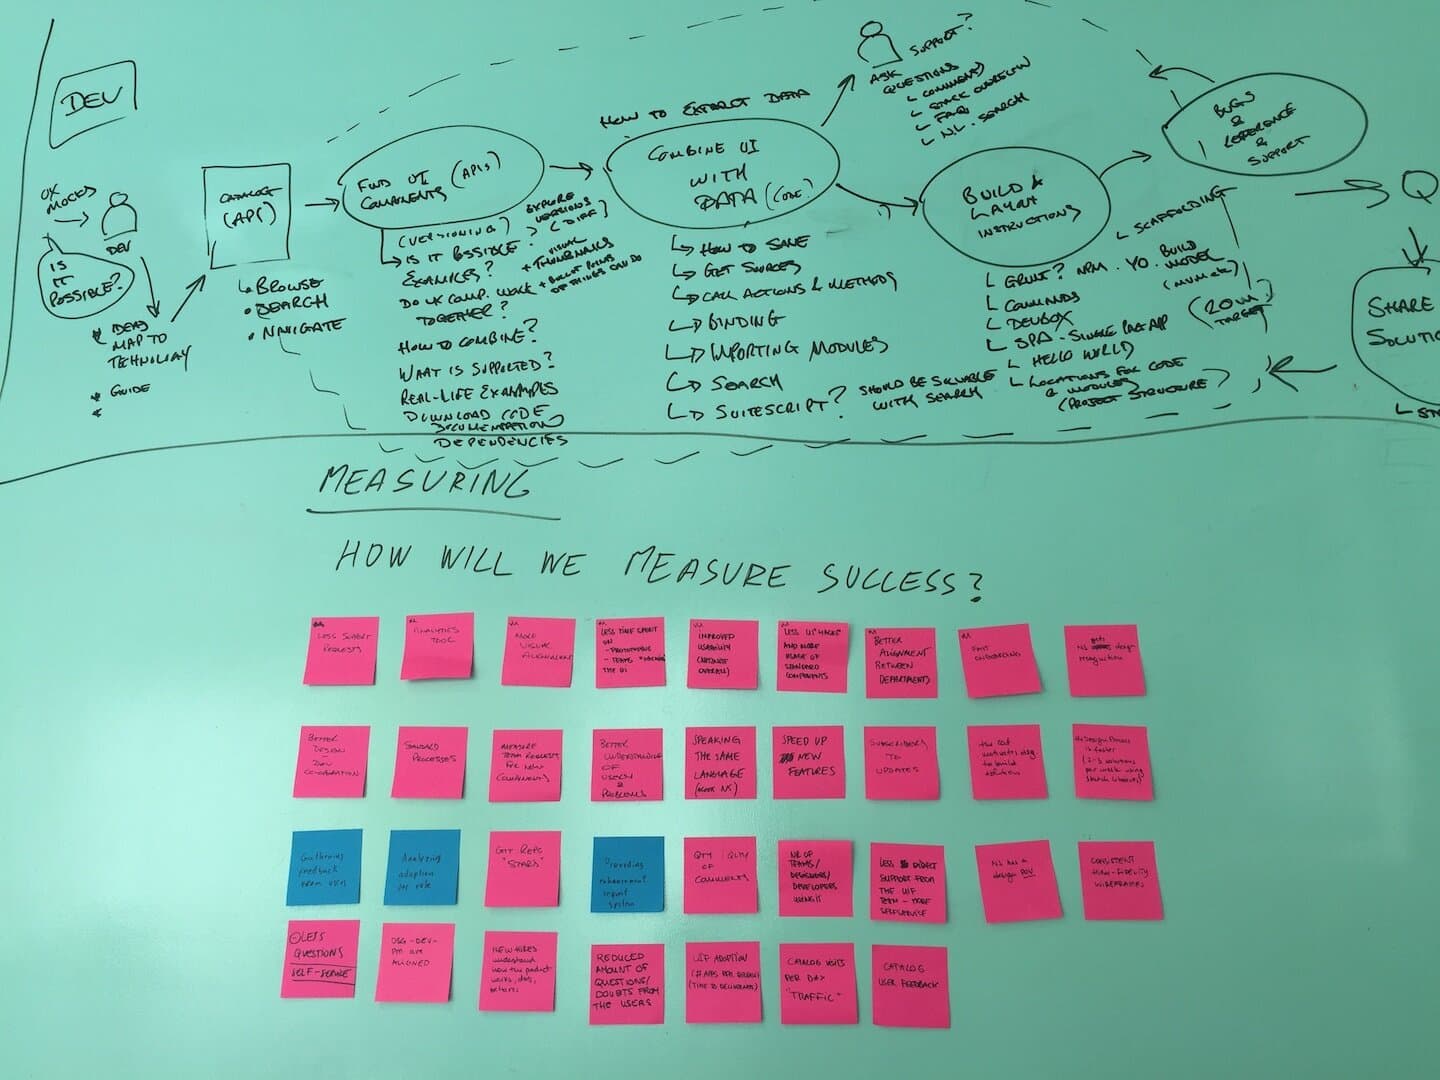 DEV
UX
MOCKS
DEV
IS
IT
POSSIBLE?
IDEAS
MAP TO
TECHNOLOGY
GUIDE
CATALOG
(API)
BROWSE
SEARCH
NAVIGATE
FIND UI (APIS)
COMPONENTS
(VERSIONING)
EXPLORE
VERSIONS
(DIFF)
IS IT POSSIBLE?
EXAMPLES?
+ VISUAL
THUMBNAILS
+ BULLET POINTS
OF THINGS CAN DO
DO UX COMP. WORK
TOGETHER?
HOW TO COMBINE?
WHAT IS SUPPORTED?
REAL-LIFE EXAMPLES
DOWNLOAD CODE
DOCUMENTATION
DEPENDENCIES
HOW TO EXTRACT DATA
COMBINE UI
WITH
DATA (CODE?)
HOW TO SAVE
GET SOURCES
CALL ACTIONS & METHODS
BINDING
IMPORTING MODULES
SEARCH
SUITESCRIPT?
SHOULD BE SOLVABLE
WITH SEARCH
SUPPORT?
ASK
QUESTIONS
COMMENTS
STACK OVERFLOW
FAQ
N.L. SEARCH
BUILD &
LAYOUT
INSTRUCTIONS
SCAFFOLDING
GRUNT? NPM. YO. BUILD
MODEL
COMMANDS
DEVBOX
SPA - SINGLE PAGE APP
(20M
TARGET)
HELLO WORLD
LOCATIONS FOR CODE
& MODULES
(PROJECT STRUCTURE)?
BUGS
&
REFERENCE
&
SUPPORT
Q
SHARE
SOLUTIO
MEASURING
HOW WILL WE MEASURE SUCCESS?
LESS SUPPORT
REQUESTS
ANALYTICS
TOOL
MORE
VISUAL
ALIGNMENT
LESS TIME SPENT
ON
- PROTOTYPING
- TEAMS
THE UI
IMPROVED
USABILITY
OVERALL)
LESS UI "HACKS"
AND MORE
USAGE OF
STANDARD
COMPONENTS
BETTER
ALIGNMENT
BETWEEN
DEPARTMENTS
FAST
ONBOARDING
NS
design
recognition
BETTER
DESIGN
-
DEV
CO-OPERATION
PROCESSES
MEASURE
TEAM REQUESTS
FOR NEW
COMPONENTS
BETTER
UNDERSTANDING
OF
USERS &
PROBLEMS
SPEAKING
THE SAME
LANGUAGE
SPEED UP
NEW
FEATURES
SUBSCRIBERS
TO
UPDATES
the tool
motivates
to build
solutions
the Design Process
is faster
(2-3 solutions
per week using
sketch libraries)
Gathering
feedback
from users
Analyzing
adoption
per role
GIT REPO
"STARS"
Providing
enhancement
request
system
QTY QLTY
OF
COMMENTS
NR OF
TEAMS/
DESIGNERS/
DEVELOPERS
USING IT
LESS DIRECT
SUPPORT FROM
THE UIF
TEAM - MORE
SELFSERVICE
NS has a
design POV
CONSISTENT
HIGH-FIDELITY
WIREFRAMES
LESS
QUESTIONS
SELF-SERVICE
DSG-DEV-
PM are
ALIGNED
NEW HIRES
understand
how the product
works,
REDUCED
AMOUNT OF
QUESTIONS/
DOUBTS FROM
THE USERS
UIF ADOPTION
(# APPS PER RELEASE)
(TIME TO DELIVERABLES)
CATALOG VISITS
PER DAY
"TRAFFIC"
CATALOG
USER FEEDBACK